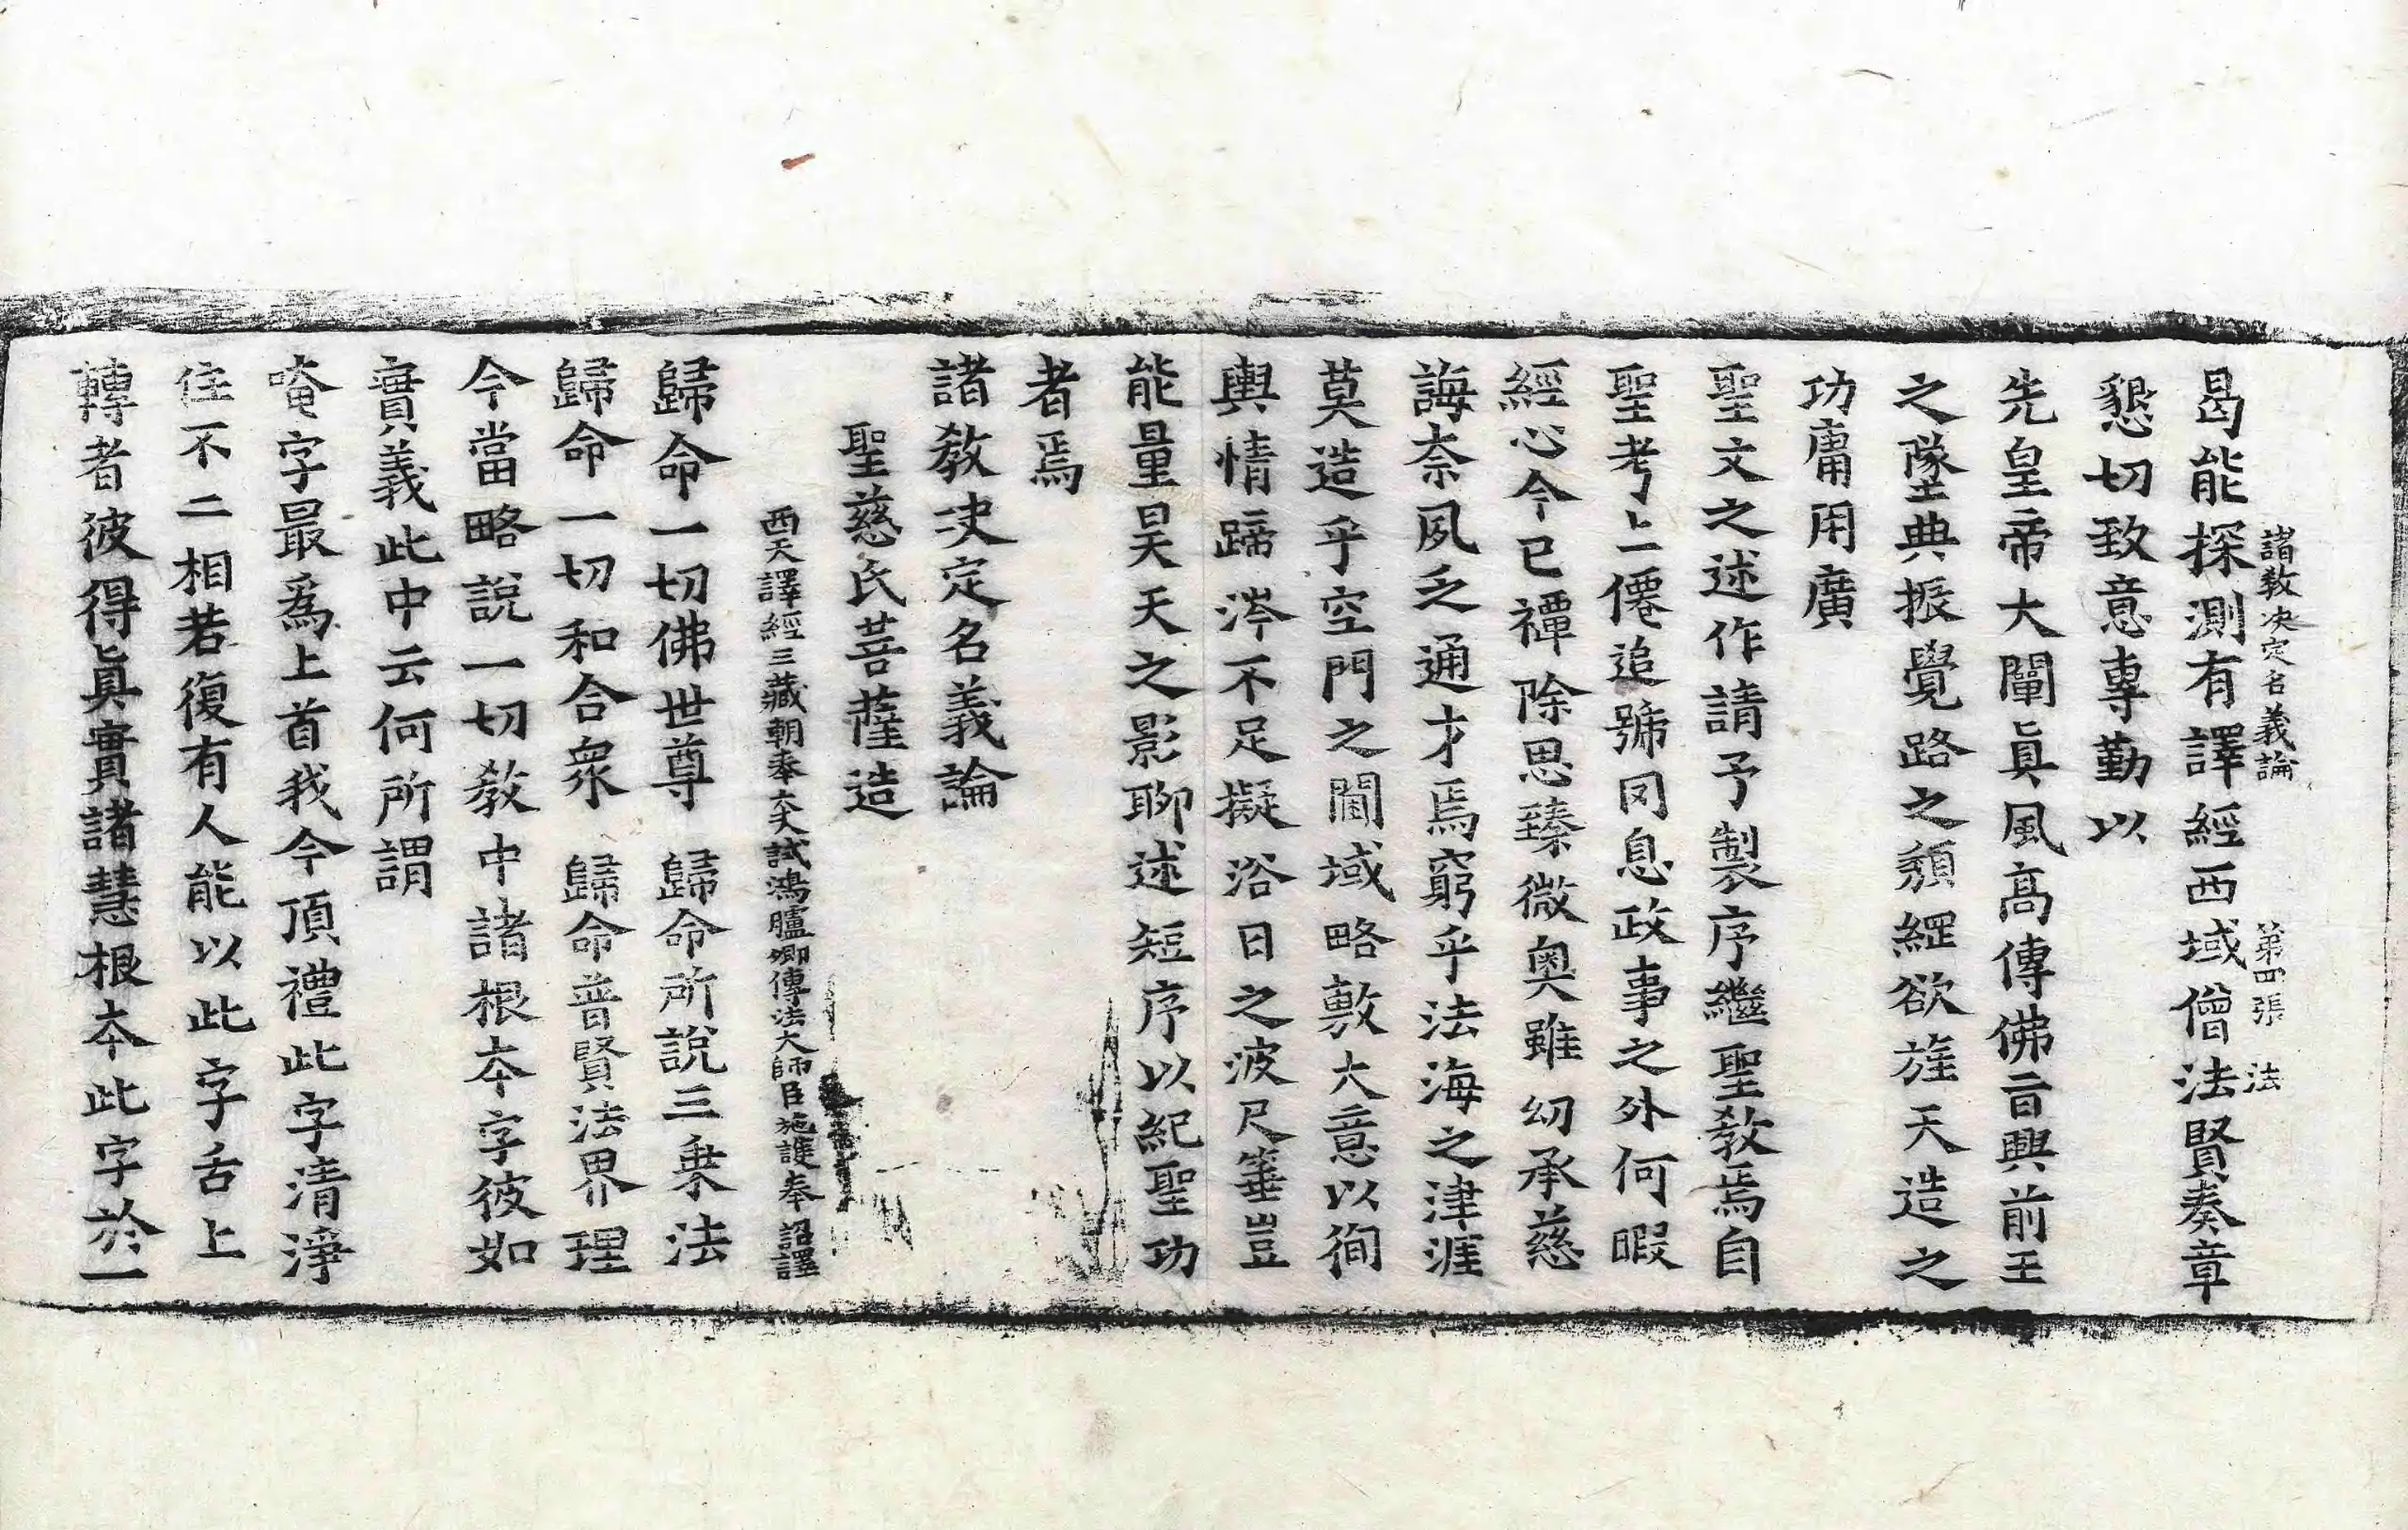 諸教決定名義論 第四張 法
曷能探測有譯經西域僧法賢奏章
懇切致意專勤以
先皇帝大闡眞風高傳佛旨興前王
之墜典振覺路之頹綱欲旌天造之
功庸用廣
聖文之述作請予製序繼聖教焉自
聖考上僊追號罔息政事之外何暇
經心今已禫除思臻微奧雖幼承慈
誨柰夙乏通才焉窮乎法海之津涯
莫造乎空門之閫域略敷大意以徇
輿情蹄涔不足擬浴日之波尺箠豈
能量昊天之影聊述短序以紀聖功
者焉
諸教決定名義論
聖慈氏菩薩造
西天譯經三藏朝奉大夫試鴻臚卿傳法大師臣施護奉 詔譯
歸命一切佛世尊 歸命所說三乗法
歸命一切和合衆 歸命普賢法界理
今當略說一切教中諸根本字彼如
實義此中云何所謂
唵字最爲上首我今頂禮此字清淨
住不二相若復有人能以此字舌上
轉者彼得眞實諸慧根本此字於一